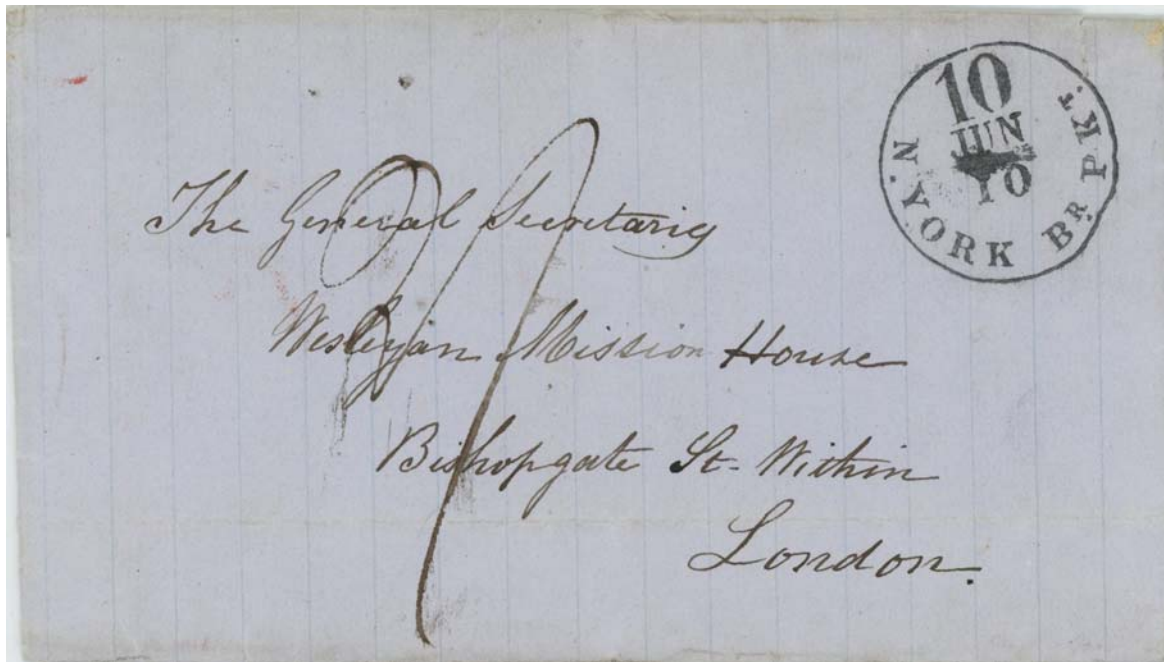 10
JUN
10
N. YORK BR PKT.
The General Secretaries
Wesleyan Mission House
Bishopgate St. Within
London.